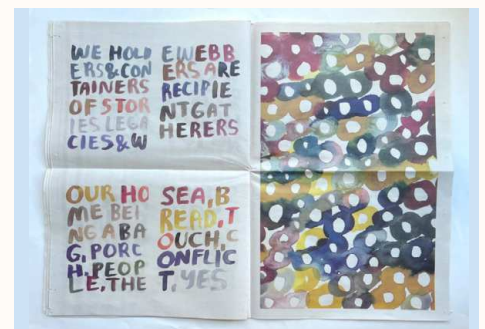 WE HOLD
ERS&CON
TAINERS
OF STOR
IES LEGA
CIES&W
E WEBB
ERS ARE
RECIPIE
NT GAT
HERERS
OUR HO
ME BEI
NG A BA
G, PORC
H, PEOP
LE, THE
SEA, B
READ, T
OUCH, C
ONFLIC
T, YES